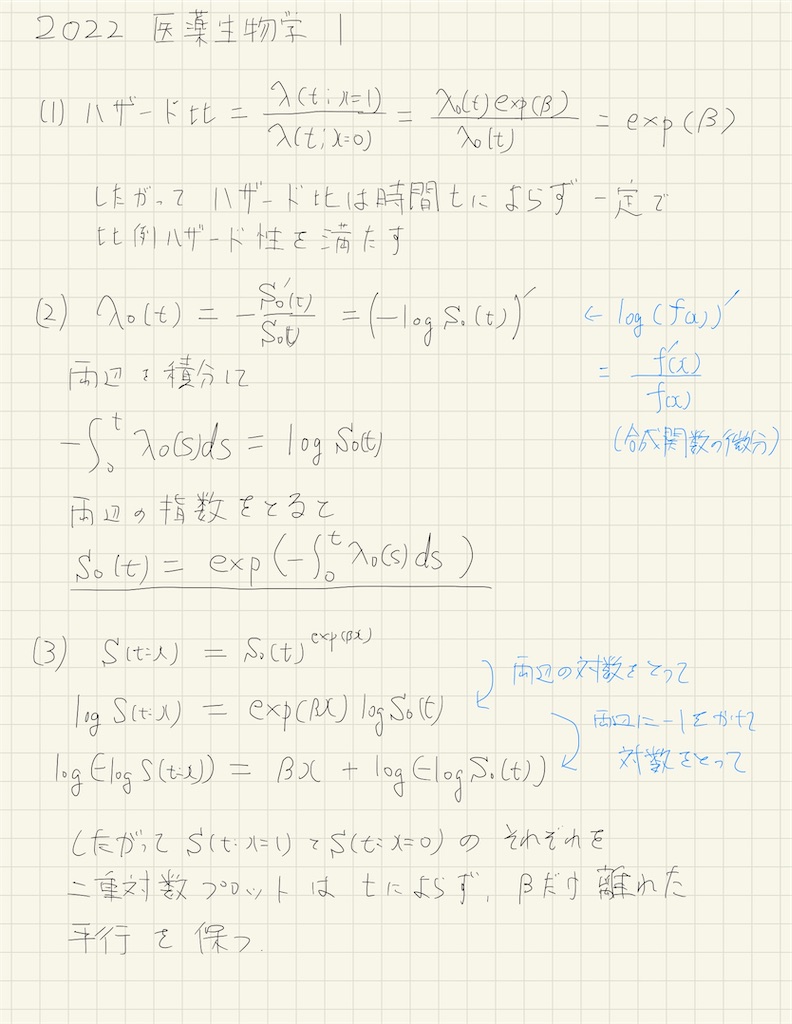 2022 医薬生物学 1
(1) ハザード比 = λ(t;x=1)/λ(t;x=0) = λ₀(t)exp(β)/λ₀(t) = exp(β)
したがって ハザード比は時間tによらず一定で
比例ハザード性を満たす
(2) λ₀(t) = -S₀'(t)/S₀(t) = (-log S₀(t))' ← log(f(x))'
両辺を積分して = f'(x)/f(x)
-∫₀ᵗ λ₀(s)ds = log S₀(t) (合成関数の微分)
両辺の指数をとると
S₀(t) = exp(-∫₀ᵗ λ₀(s)ds)
(3) S(t:x) = S₀(t)^exp(βx)
両辺の対数をとって
log S(t:x) = exp(βx) log S₀(t)
両辺に-1をかけて
対数をとって
log(-log S(t:x)) = βx + log(-log S₀(t))
したがって S(t:x=1) と S(t:x=0) の それぞれを
二重対数プロットは tによらず, βだけ離れた
平行を保つ.